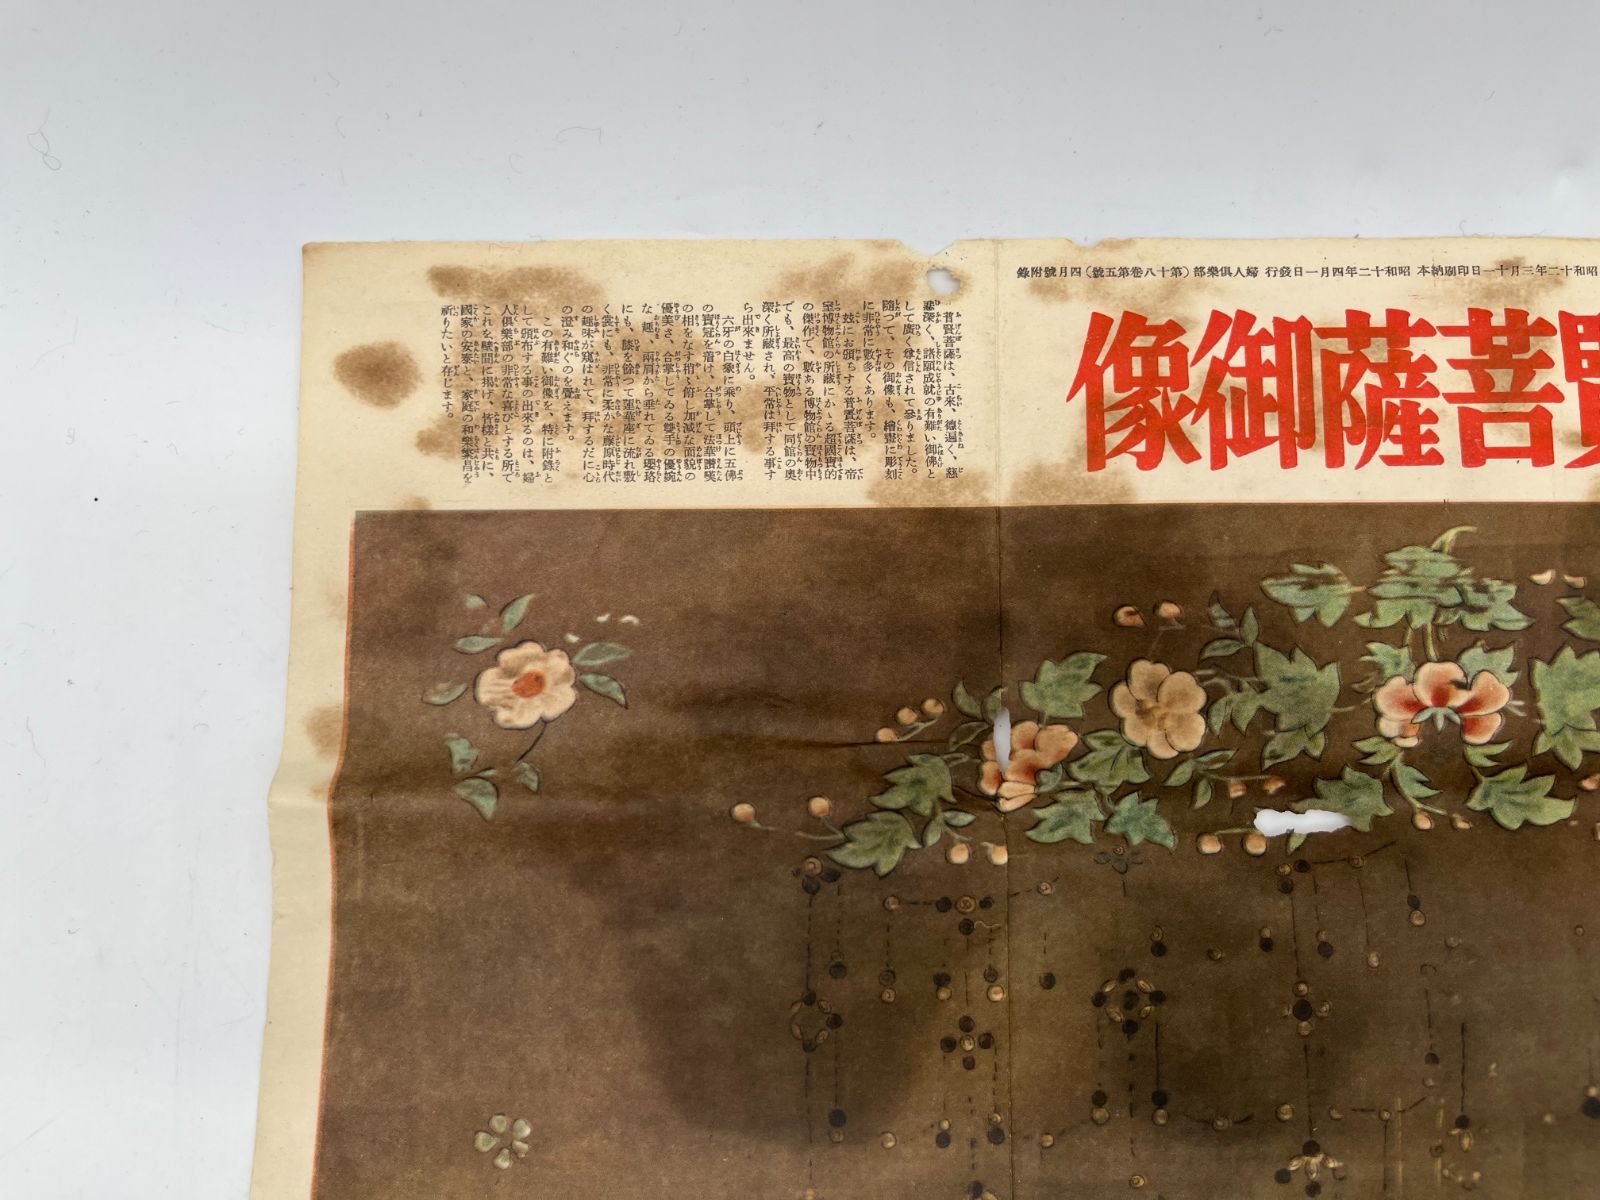 昭和十二年三月十一日印刷納本 昭和十二年四月一日發行 婦人俱樂部(第十八卷第五號)四月號附錄
賢菩薩御像
普賢菩薩は、古來、德遍く、慈
悲深く、諸願成就の有難い御佛と
して廣く尊信されて參りました。
隨つて、その御像も、繪畫に彫刻
に非常に數多くあります。
茲にお頒ちする普賢菩薩は、帝
室博物館の所藏にかゝる超國寶的
の傑作で、數ある博物館の寶物中
でも、最高の寶物として同館の奧
深く所藏され、平常は拜する事す
ら出來ません。
六牙の白象に乘り、頭上に五佛
の寶冠を着け、合掌して法華讃嘆
の相をなす稍〻俯し加減な面貌の
優美さ、合掌してゐる雙手の優婉
な趣、兩肩から垂れてゐる瓔珞
にも、膝を徐つて蓮華座に流れ敷
く裳にも、非常に柔かな藤原時代
の趣味が窺はれて、拜するだに心
の澄み和ぐのを覺えます。
この有難い御像を、特に附錄と
して頒布する事の出來るのは、婦
人俱樂部の非常な喜びとする所で
これを壁間に揭げ、皆樣と共に、
國家の安泰と、家庭和樂繁昌を
祈りたいと存じます。